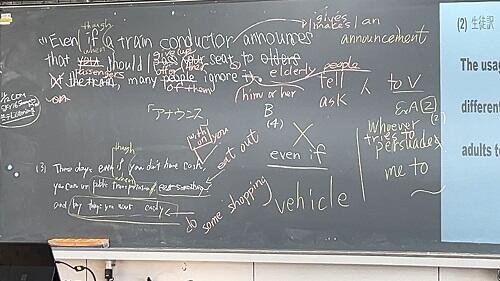 though
gives
makes / an
(1) Even if a train conductor announces announcement
when
that you should give up your seat to others
passengers offer elderly people
the train, many people ignore it
of them him or her tell 人 to V
ask
「アナウンス B Ex A [2]
(4) (2)
whoever
tries to
persuades
me to
with you
even if
though
eat out
(3) These days even if you don't have cash,
when
you can use public transportation, eat something
and buy things you want easily
do some shopping
vehicle
(2) 生徒訳
The usag
different
adults to